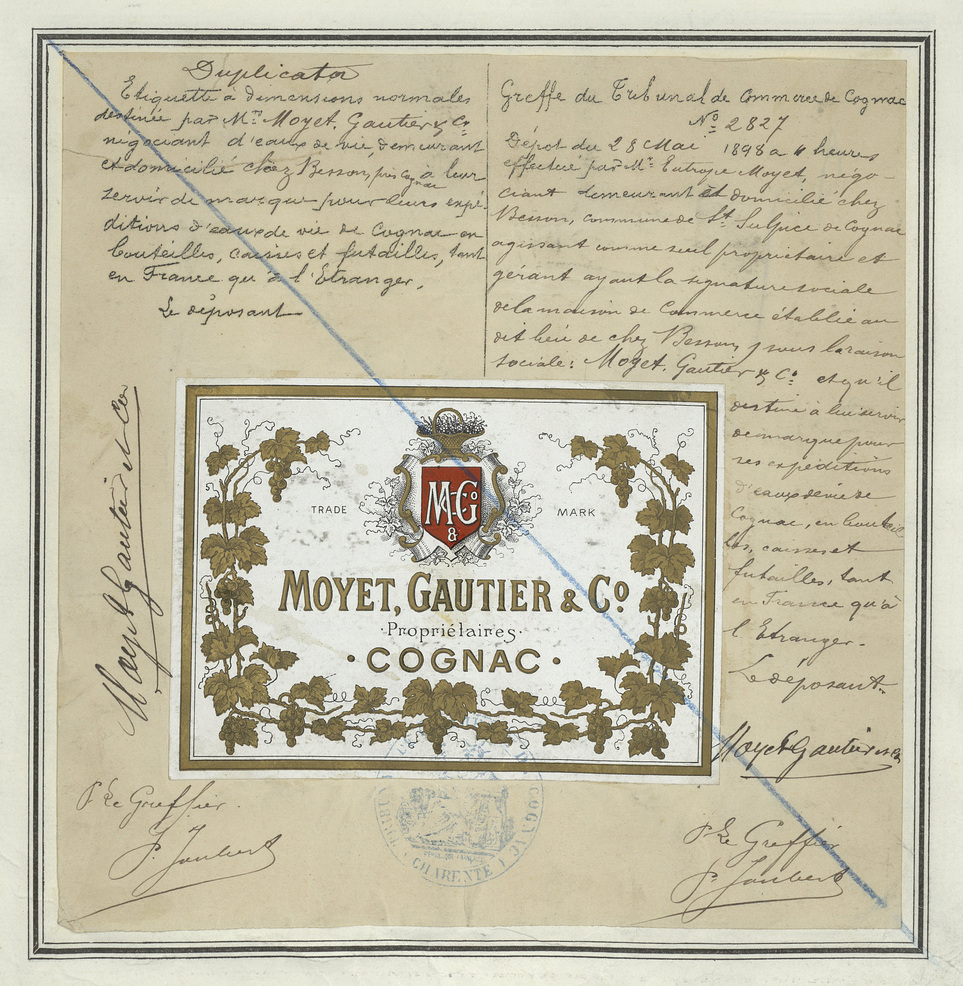 Duplicator
Etiquette à dimensions normales
destinée par Mrs Moyet, Gautier & Co
négociant d'eaux de vie, demeurant
et domicilié chez Besson, près Cognac à leur
servir de marque pour leurs expé-
ditions d'eaux de vie de Cognac en
bouteilles, caisses et futailles, tant
en France qu'à l'Etranger.
Le déposant
Moyet Gautier et Co
Pr Le Greffier.
P. Joubert
Greffe du Tribunal de Commerce de Cognac
No 2827
Dépot du 28 Mai 1898 a 11 heures
effectué par Mr Eutrope Moyet, négo-
ciant demeurant et domicilié chez
Besson, commune de St Sulpice de Cognac
agissant comme seul propriétaire et
gérant ayant la signature sociale
de la maison de Commerce établie au
dit lieu de chez Besson, sous la raison
sociale: Moyet, Gautier & Co et qu'il
destine à lui servir
de marque pour
ses expéditions
d'eaux de vie de
Cognac, en bouteil
les, caisses et
futailles, tant
en France qu'à
l'Etranger.
Le déposant.
Moyet Gautier et Co
Pr Le Greffier
P. Joubert
M G Co
&
TRADE MARK
MOYET, GAUTIER & Co
·Propriétaires·
·COGNAC·
DE COGNAC
CHARENTE